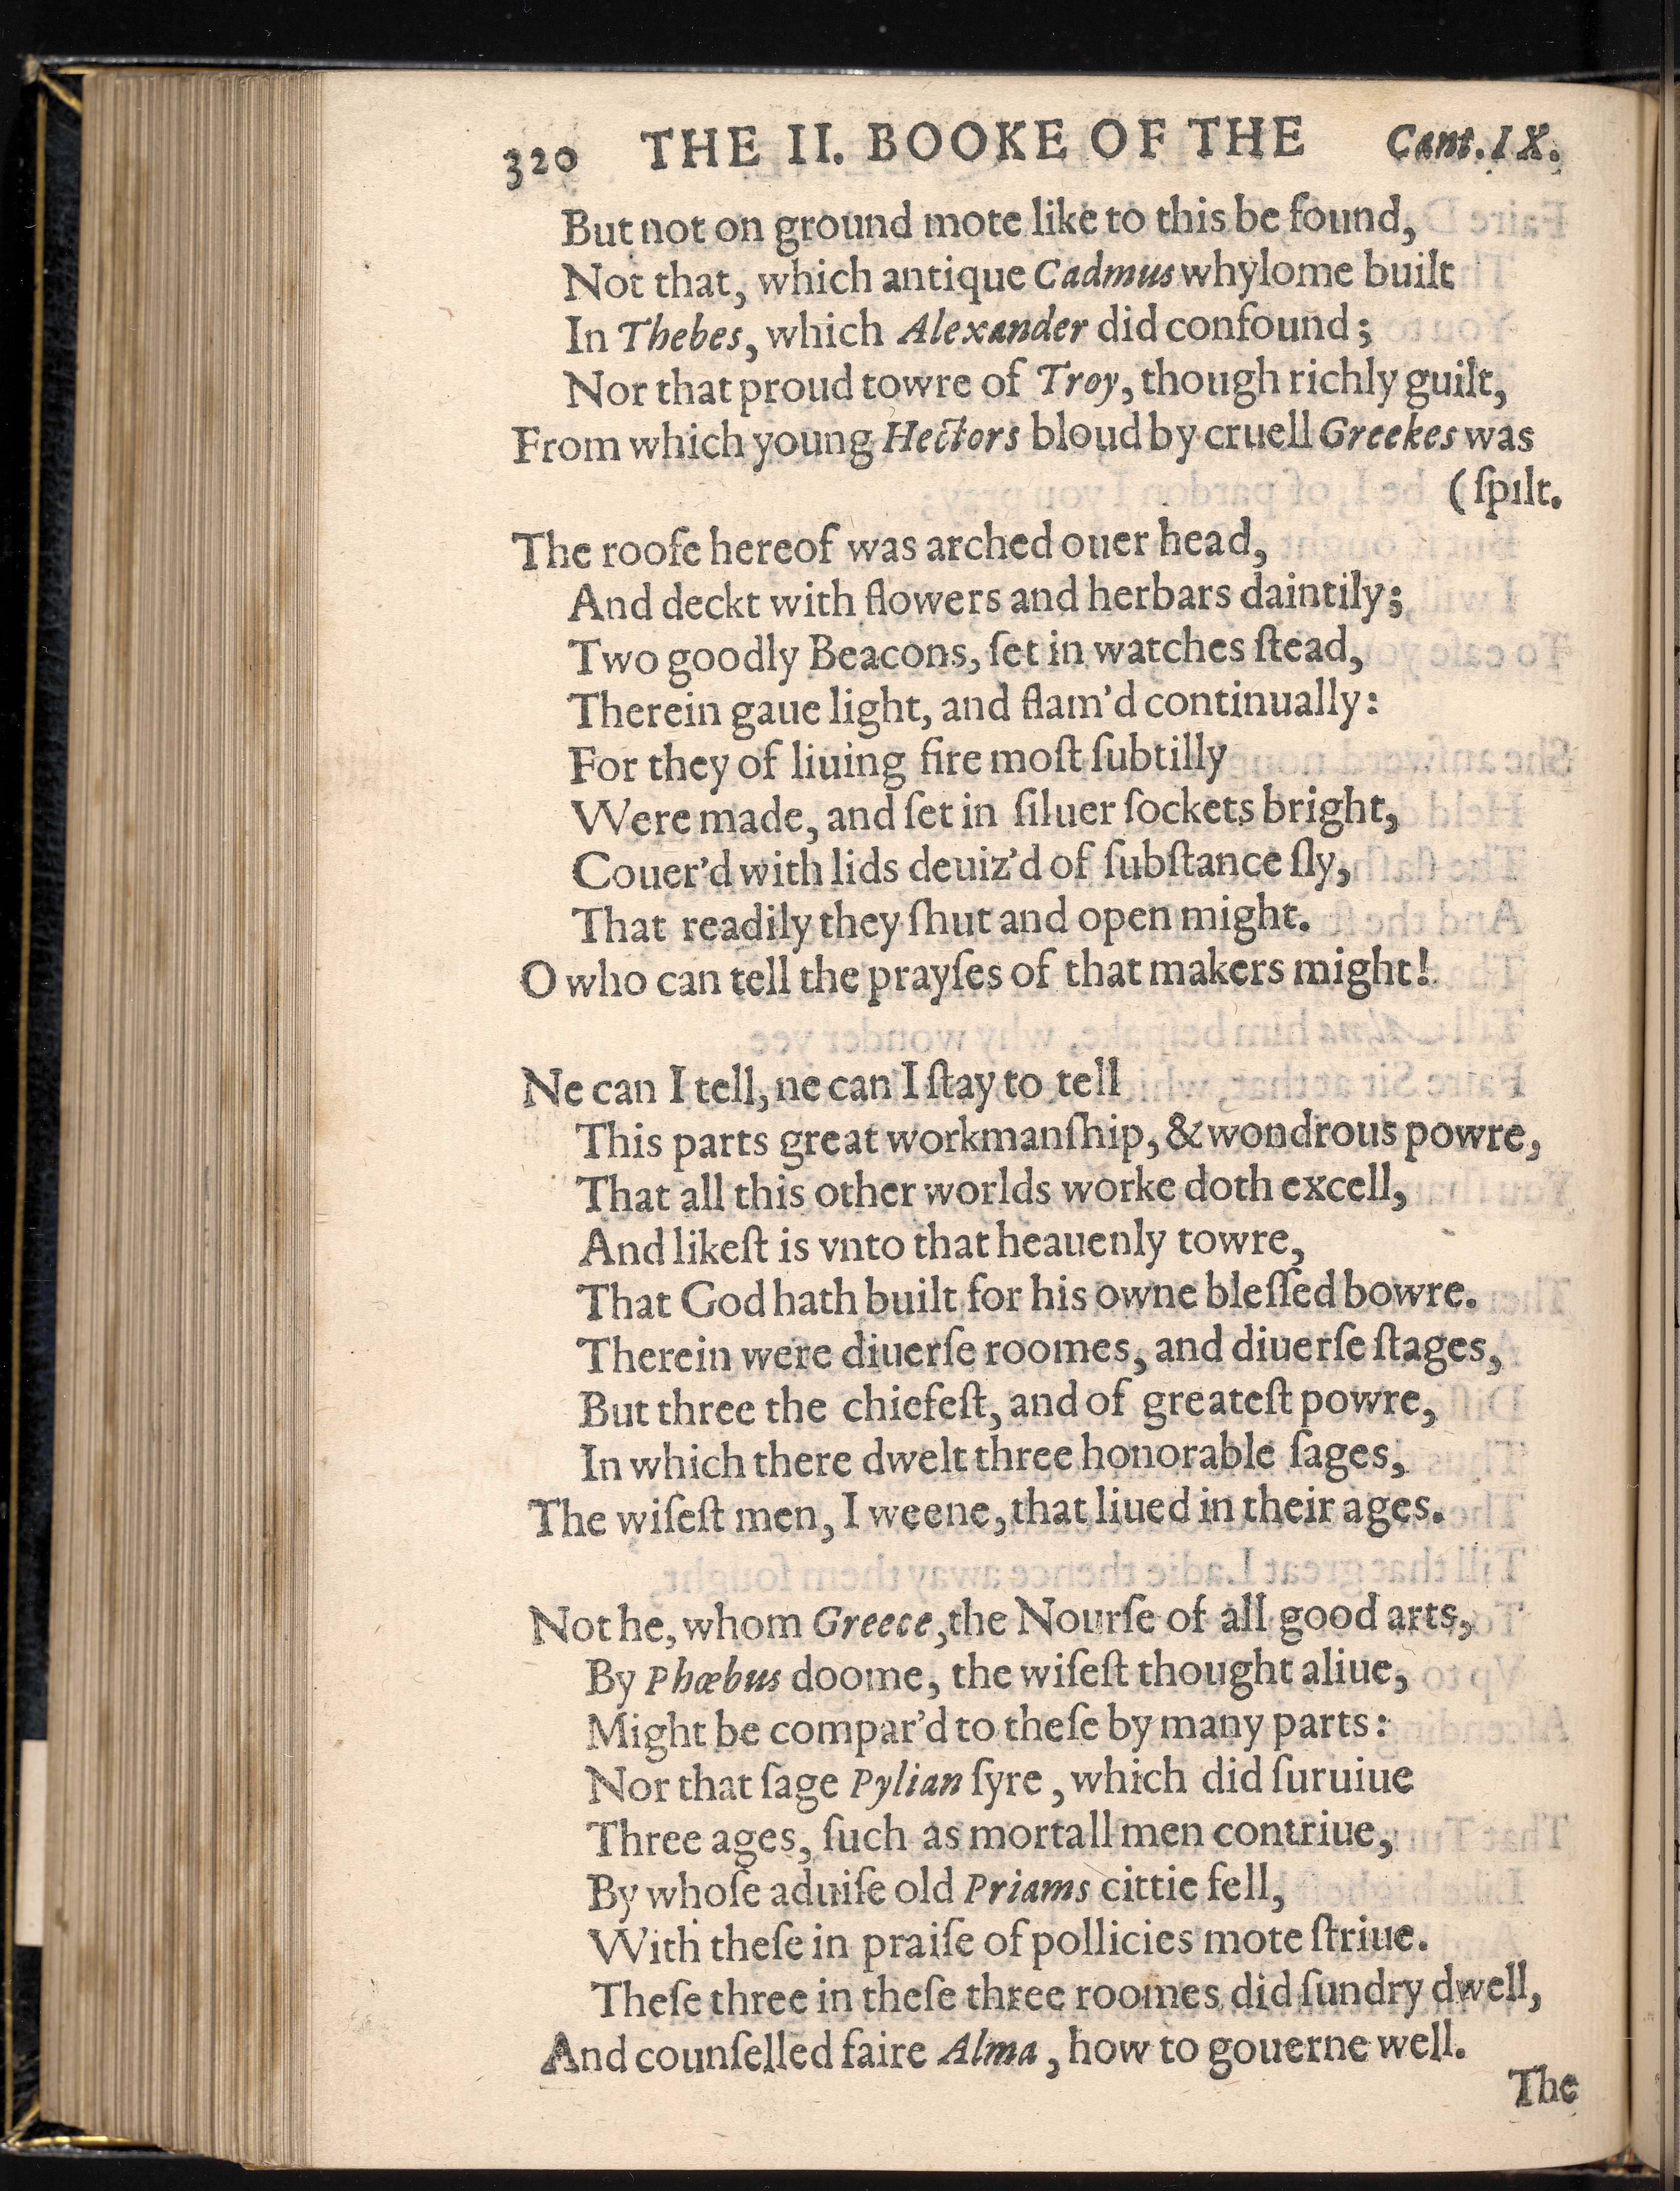 320 THE II. BOOKE OF THE Cant. IX.
But not on ground mote like to this be found,
Not that, which antique Cadmus whylome built
In Thebes, which Alexander did confound;
Nor that proud towre of Troy, though richly guilt,
From which young Hectors bloud by cruell Greekes was
(ſpilt.
The roofe hereof was arched ouer head,
And deckt with flowers and herbars daintily;
Two goodly Beacons, ſet in watches ſtead,
Therein gaue light, and flam'd continually:
For they of liuing fire moſt ſubtilly
Were made, and ſet in ſiluer ſockets bright,
Couer'd with lids deuiz'd of ſubſtance ſly,
That readily they ſhut and open might.
O who can tell the prayſes of that makers might!
Ne can I tell, ne can I ſtay to tell
This parts great workmanſhip, & wondrous powre,
That all this other worlds worke doth excell,
And likeſt is vnto that heauenly towre,
That God hath built for his owne bleſſed bowre.
Therein were diuerſe roomes, and diuerſe ſtages,
But three the chiefeſt, and of greateſt powre,
In which there dwelt three honorable ſages,
The wiſeſt men, I weene, that liued in their ages.
Not he, whom Greece, the Nourſe of all good arts,
By Phœbus doome, the wiſeſt thought aliue,
Might be compar'd to theſe by many parts:
Nor that ſage Pylian ſyre, which did ſuruiue
Three ages, ſuch as mortall men contriue,
By whoſe aduiſe old Priams cittie fell,
With theſe in praiſe of pollicies mote ſtriue.
Theſe three in theſe three roomes did ſundry dwell,
And counſelled faire Alma, how to gouerne well.
The